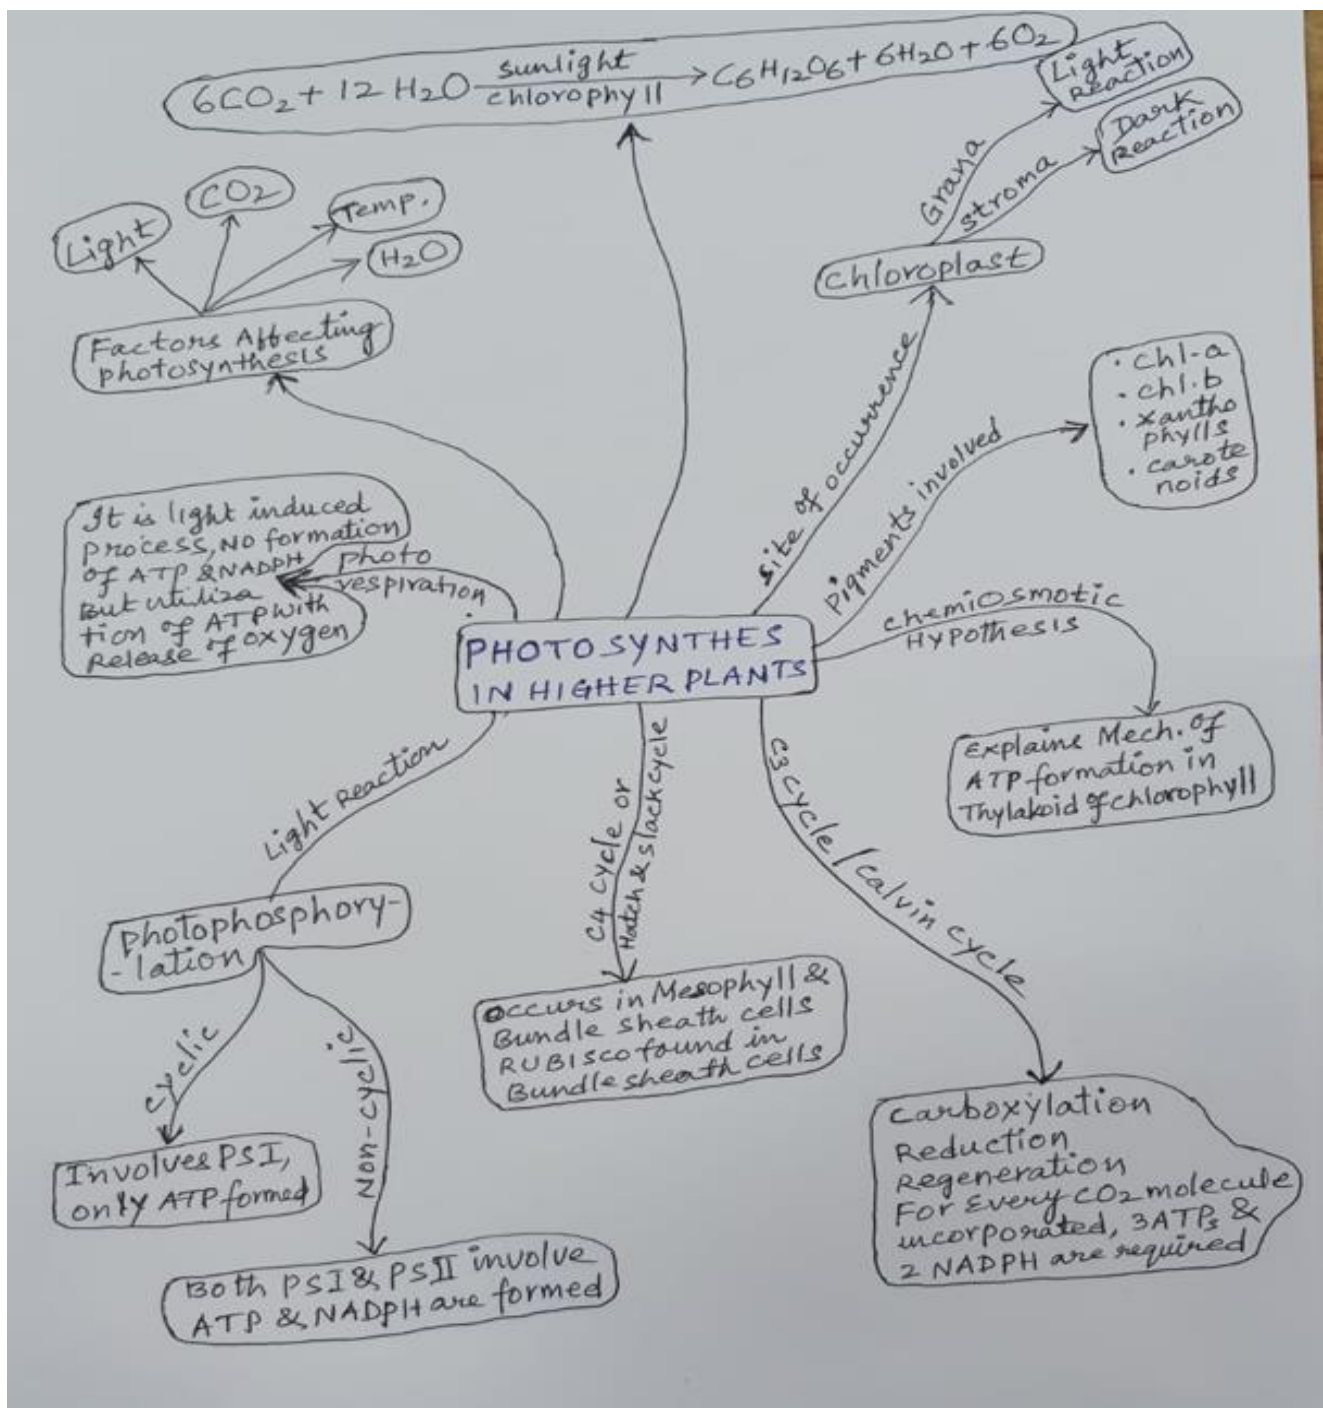 6CO2 + 12 H2O sunlight chlorophyll → C6H12O6 + 6H2O + 6O2
Light
Reaction
Dark
Reaction
Grana
stroma
Chloroplast
CO2
Temp.
Light
H2O
Factors Affecting
photosynthesis
site of occurrence
Pigments involved
• chl-a
• chl.b
• xantho
phylls
• carote
noids
It is light induced
process, NO formation
of ATP & NADPH
But utiliza
tion of ATP with
Release of oxygen
photo
respiration
PHOTOSYNTHES
IN HIGHER PLANTS
chemiosmotic
HYPOTHESIS
Explains Mech. of
ATP formation in
Thylakoid of chlorophyll
Light Reaction
Photophosphory-
-lation
cyclic
Non-cyclic
Involves PSI,
only ATP formed
Both PSI & PSII involve
ATP & NADPH are formed
C4 cycle or
Hatch & slack cycle
Occurs in Mesophyll &
Bundle sheath cells
RUBISCO found in
Bundle sheath cells
C3 cycle / calvin cycle
Carboxylation
Reduction
Regeneration
For Every CO2 molecule
incorporated, 3ATPs &
2 NADPH are required